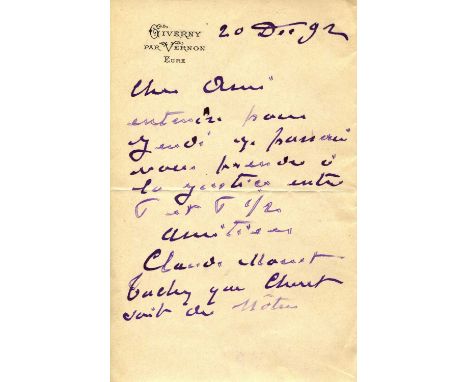 GIVERNY
PAR VERNON
EURE
20 Dec 92
Cher Ami
entendu pour
Jeudi je passerai
vous prendre à
la justice entre
et 1/2
Amitiés
Claude Monet
Tachez que Cheret
soit des Nôtres